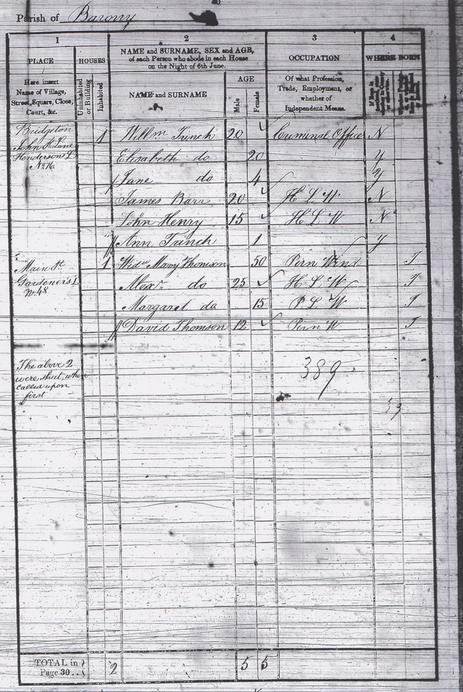 Parish of Barony
1
2
3
4
PLACE
HOUSES
NAME and SURNAME, SEX and AGE,
of each Person who abode in each House
on the Night of 6th June.
OCCUPATION
WHERE BORN
Here insert
Name of Village,
Street, Square, Close,
Court, &c.
Uninhabited
or Building
Inhabited
NAME and SURNAME
AGE
Male
Female
Of what Profession,
Trade, Employment, or
whether of
Independent Means.
Bridgeton
John St Lane
Henderson's L
No 16
1 Willm Trench 20 Criminal Officer N
Elizabeth do 20 Y
Jane do 4 Y
James Barr 20 H L W N
John Henry 15 H L W N
Ann Trench 1 Y
Main St
Gardener's L
No 48
1 Widw Mary Thomson 50 Pirn Wind I
Alexr do 25 H L W I
Margaret do 15 P L W I
David Thomson 12 Pirn W I
The above 2
were shut when
called upon
first
389
TOTAL in
Page 30..
2 5 5